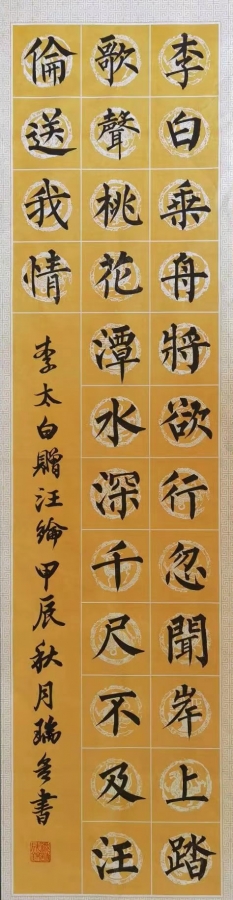 李白乘舟將欲行忽聞岸上踏
歌聲桃花潭水深千尺不及汪
倫送我情
李太白贈汪綸甲辰秋月瑞冬書